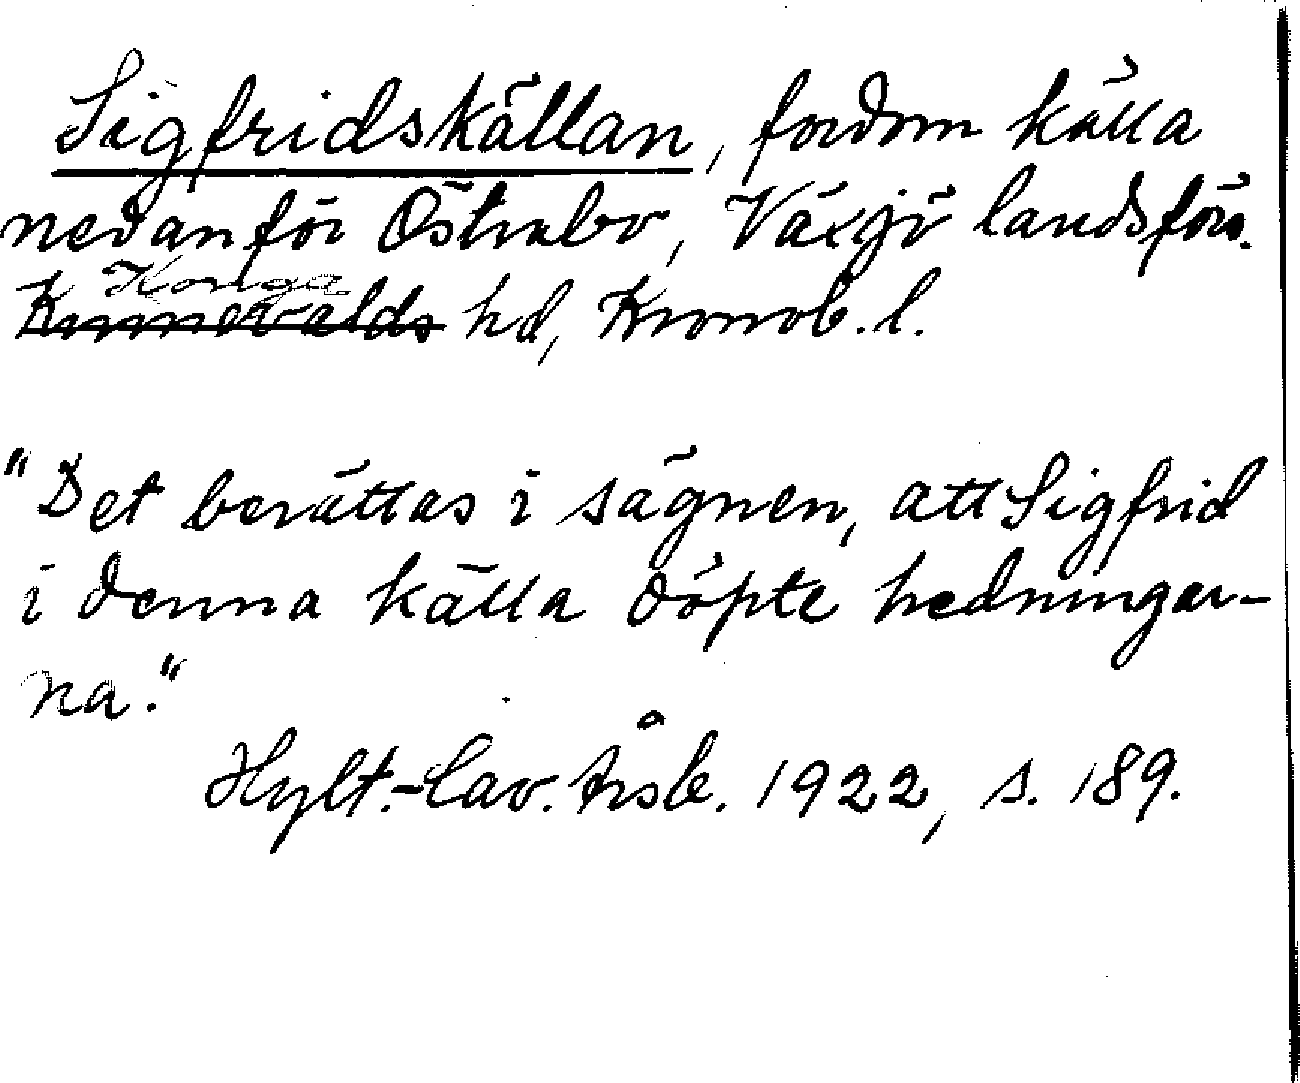 Sigfridskällan, fordom källa
nedanför Östrabo, Växjö landsförs.
Konga
Kinnevalds hd, Kronob. l.
"Det berättas i sägnen, att Sigfrid
i denna källa döpte hedningar-
na."
Hylt.-Cav. årsb. 1922, s. 189.